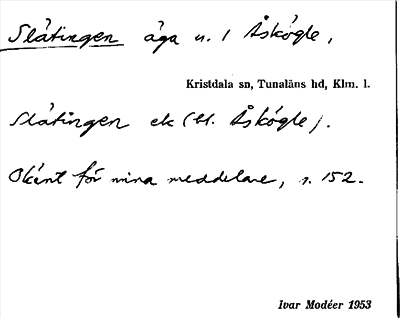 Slåtingen äga u. / Åskögle,
Kristdala sn, Tunaläns hd, Klm. l.
Slåtingen ek (bl. Åskögle).
Okänt för mina meddelare, s. 152.
Ivar Modéer 1953